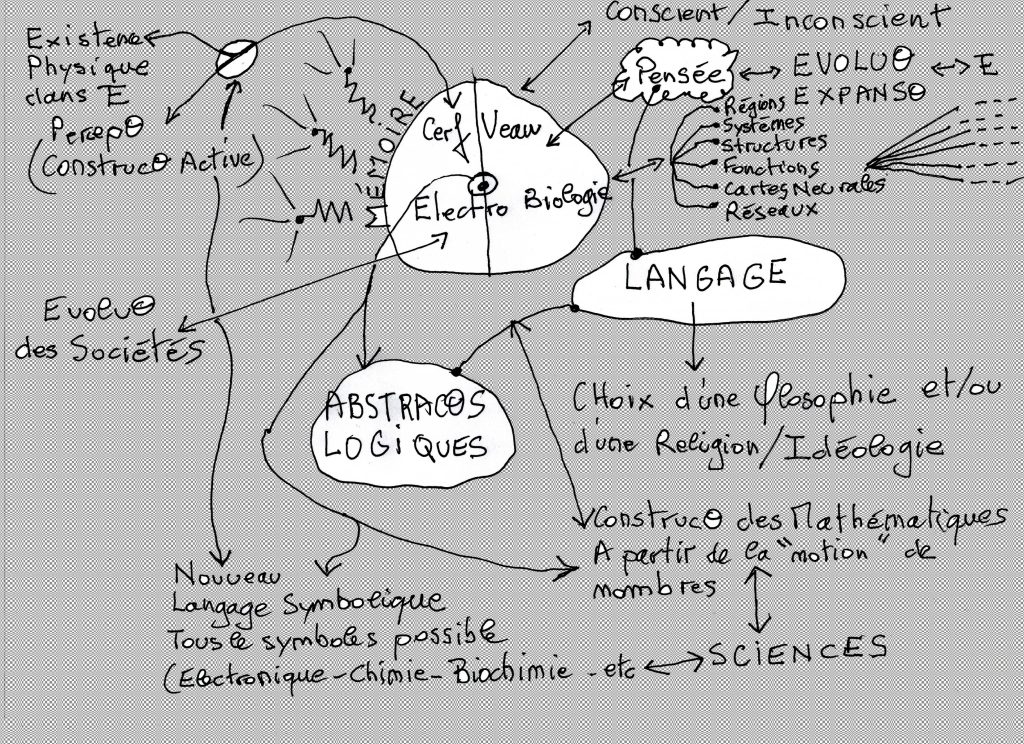 Conscient / Inconscient
Existence
Physique
dans E
Percepθ
(Construcθ Active)
MÉMOIRE
Cerf Veau
Electro Biologie
Pensée
EVOLUθ
E
EXPANSθ
Régions
Systèmes
Structures
Fonctions
Cartes Neurales
Réseaux
LANGAGE
Evoluθ
des Sociétés
ABSTRACθS
LOGiQUES
CHoix d'une φlosophie et/ou
d'une Religion/Idéologie
Construcθ des Mathématiques
A partir de la "notion" de
nombres
Nouveau
Langage Symbolique
Tous le symboles possible
(Electronique-Chimie-Biochimie - etc
SCiENCES